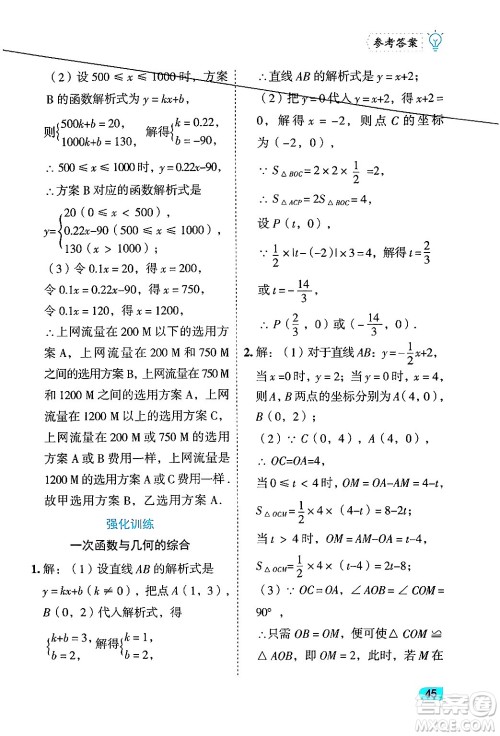 参考答案
（2）设 500 ≤ x ≤ 1000 时，方案
B 的函数解析式为 y = kx+b，
则{500k+b = 20， 1000k+b = 130， 解得{k = 0.22， b = -90，
∴ 500 ≤ x ≤ 1000 时，y = 0.22x-90
∴ 方案 B 对应的函数解析式是
y={20（0 ≤ x < 500）， 0.22x-90（500 ≤ x ≤ 1000）， 130（x > 1000）
（3）令 0.1x = 20，得 x = 200，
令 0.1x = 0.22x-90，得 x = 750，
令 0.1x = 120，得 x = 1200，
∴ 上网流量在 200 M 以下的选用方
案 A，上网流量在 200 M 和 750 M
之间的选用方案 B，上网流量在
750 M 和 1200 M 之间的选用方案
A，上网流量在 1200 M 以上的选用
方案 B，上网流量在 200 M、750 M、
1200 M 的方案 A 和方案 B 费用一样.
故甲选用方案 B，乙选用方案 A.
强化训练
一次函数与几何的综合
1. 解：（1）设直线 AB 的解析式是
y = kx+b（k ≠ 0），把点 A（1，3），
B（0，2）代人解析式，得
{k+b = 3， b = 2， 解得{k = 1， b = 2，
∴ 直线 AB 的解析式是 y = x+2；
（2）把 y = 0代人 y = x+2 得 x+2=
0，解得 x = -2，则点 C 的坐标
为（-2，0），
∵ S△BOC = 2 × 2 × 1/2 =2，
∴ S△ACP = 2S△BOC = 4，
设 P（t，0），
∵ 1/2 × |t-（-2）| × 3 = 4，解得 t= 2/3
或 t= -14/3，
∴ P（2/3，0）或（-14/3，0）.
2. 解：（1）对于直线 AB：y= -1/2x+2，
当 x =0 时，y = 2，当 y = 0时，x=4，
则 A，B 两点的坐标分别为 A（4，0），
B（0，2）；
（2）∵ C（0，4），A（4，0），
∴ OC = OA = 4，
当 0 ≤ t ≤ 4 时，OM = OA-AM = 4-t，
S△OCM = 1/2 × 4 ×（4-t）= 8-2t，
当 t > 4 时，OM = AM-OA = t-4，
S△OCM = 1/2 × 4 ×（t-4）= 2t-8；
（3）∵ OC = OA，∠AOB = ∠COM =
90°，
∴ 只需 OB = OM，便可使△ COM ≌
△ AOB，即 OM = 2，此时若 M 在
45